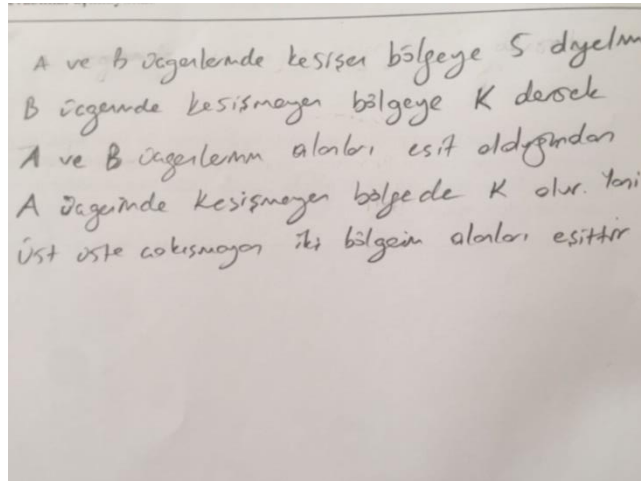 A ve B üçgenlerinde kesişen bölgeye S diyelim
B üçgeninde kesişmeyen bölgeye K dersek
A ve B üçgenlerinin alanları eşit olduğundan
A üçgeninde kesişmeyen bölgede K olur. Yani
Üst üste çakışmayan iki bölgein alanları eşittir